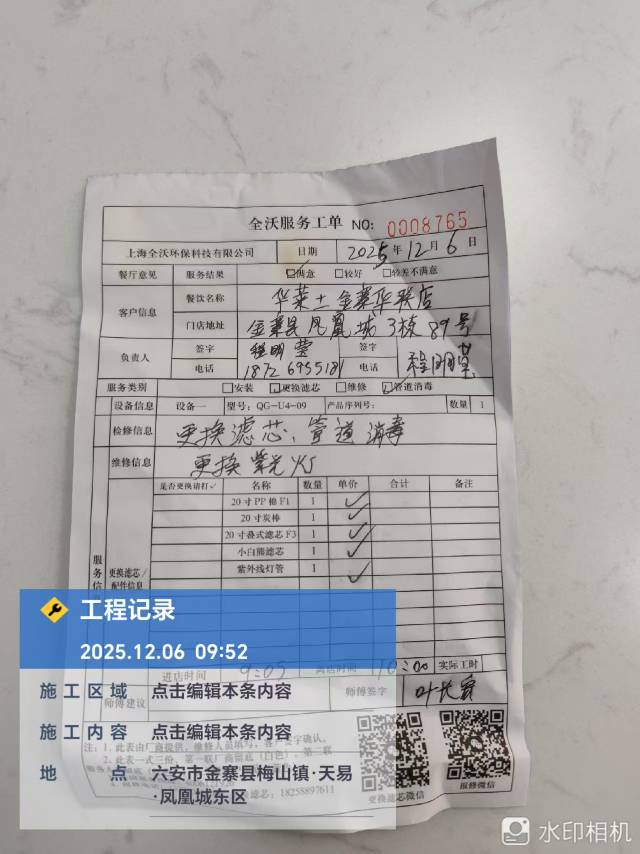 全沃服务工单 NO: 0008765
上海全沃环保科技有限公司 日期 2025年12月6日
餐厅意见 服务结果 ☑满意 □较好 □轻差不满意
客户信息 餐饮名称 华莱士金寨华联店
门店地址 金寨县凤凰城3栋89号
负责人 签字 程明莹 签字 程明莹
电话 电话
服务类别 □安装 ☑更换滤芯 □维修 ☑管道消毒
设备信息 设备一 型号：QG-U4-09 产品序列号： 数量 1
检修信息 更换滤芯、管道消毒
维修信息 更换紫光灯
是否更换请打✓ 名称 数量 单价 合计 备注
20寸PP棉F1 1 ✓
20寸炭棒 1 ✓
20寸叠式滤芯F3 1 ✓
小白熊滤芯 1 ✓
紫外线灯管 1 ✓
服务信
更换滤芯/
配件信息
工程记录
2025.12.06 09:52
进店时间 9:05 离店时间 10:00 实际工时
施工区域 点击编辑本条内容
师傅建议 师傅签字
施工内容 点击编辑本条内容
注：1. 此表由厂商提供，维修人员填写，客户签字确认。
2. 此表一式三份，第一联厂商留底（白色）、第二联
地点 六安市金寨县梅山镇·天易
·凤凰城东区
滤芯：18258897611
更换滤芯微信
报修微信
水印相机